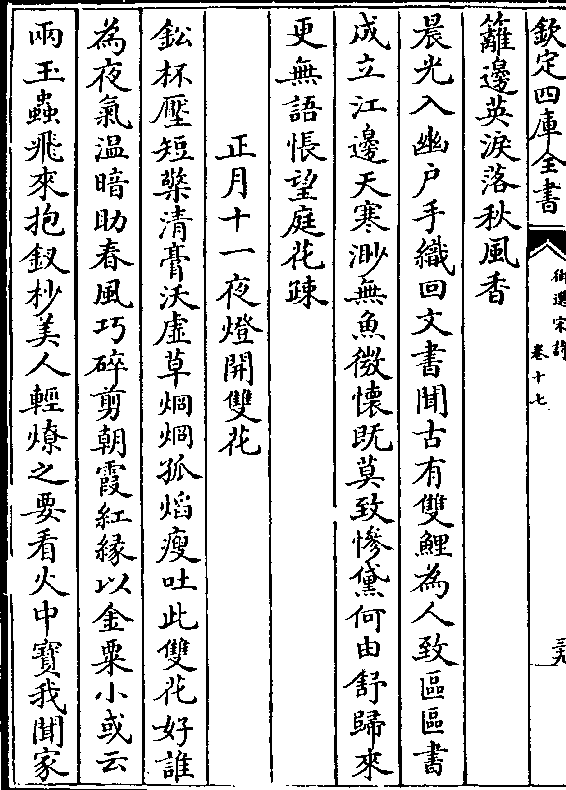 欽定四庫全書
御選宋詩
卷十七
三九
籬邊英淚落秋風香
晨光入幽户手織回文書聞古有雙鯉為人致區區書
成立江邊天寒渺無魚微懷既莫致慘黛何由舒歸來
更無語悵望庭花疎
正月十一夜燈開雙花
鈆杯壓短檠清膏沃虛草烱烱孤焰瘦吐此雙花好誰
為夜氣温暗助春風巧碎剪朝霞紅緣以金粟小或云
兩玉蟲飛來抱釵杪美人輕燎之要看火中寶我聞家